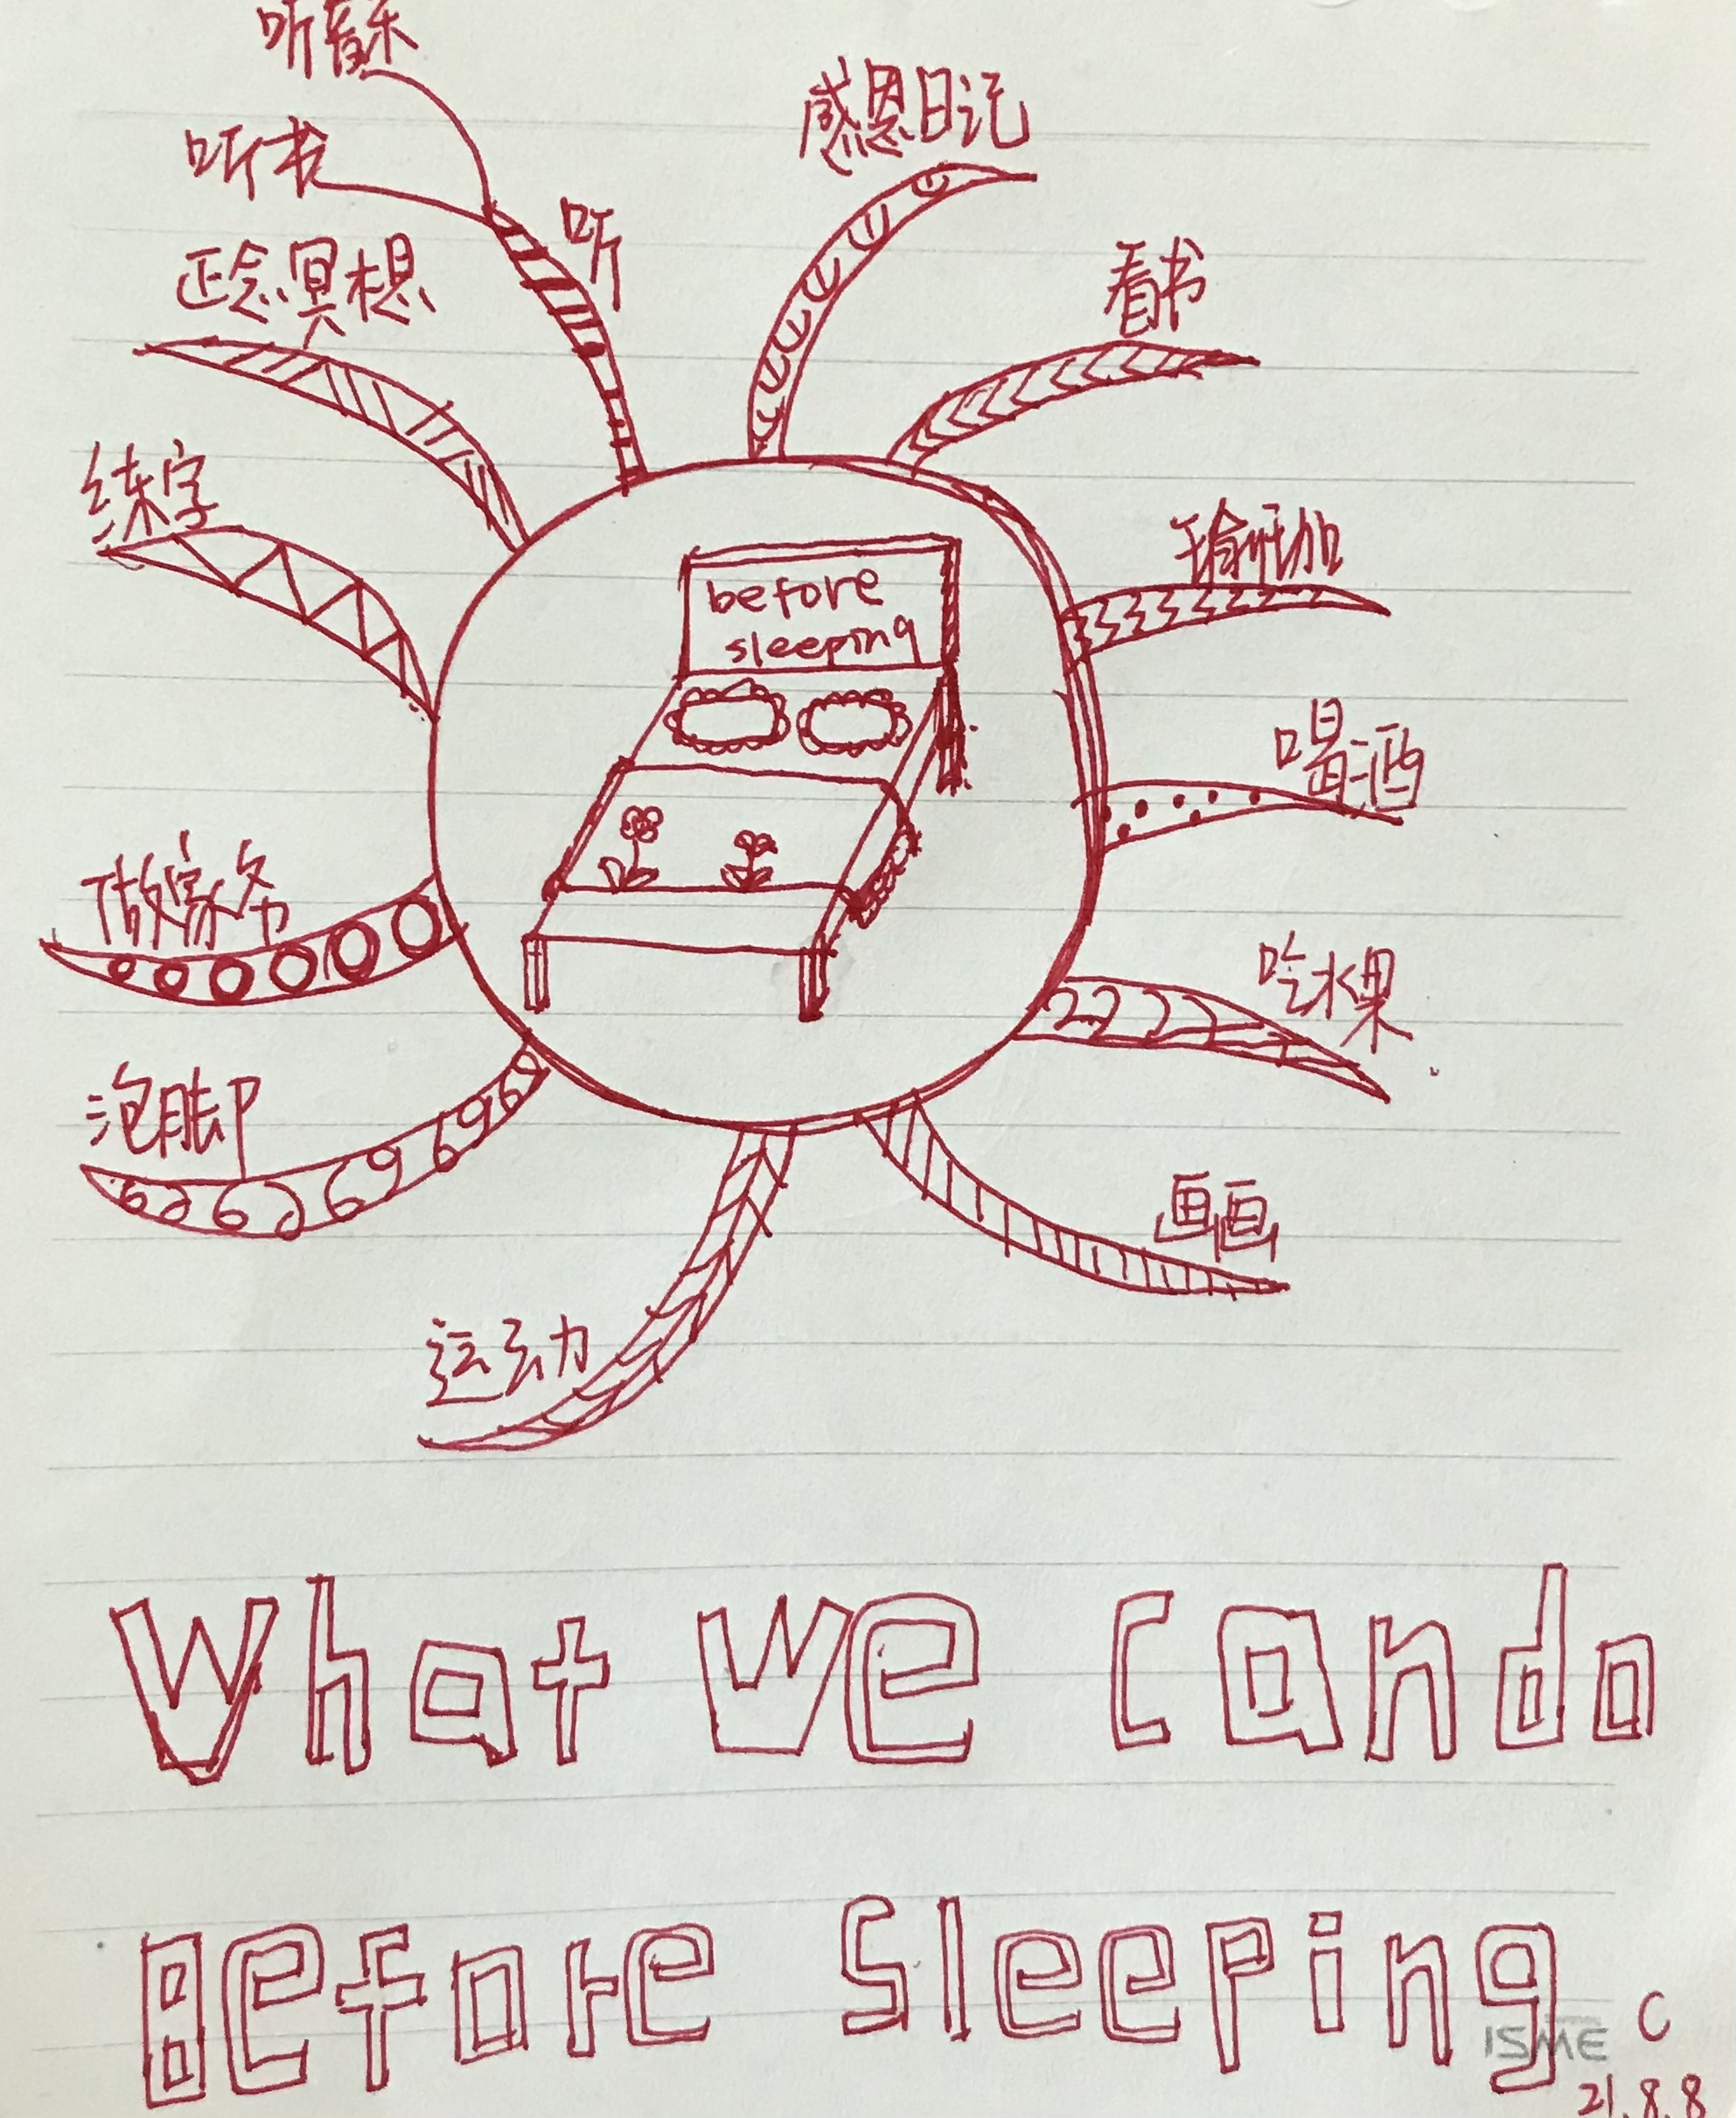 听音乐
听书
听
正念冥想
练字
做家务
泡脚
运动
感恩日记
看书
瑜伽
喝酒
吃水果
画画
before
sleeping
What We Can do
Before Sleeping
ISME
C
21.8.8